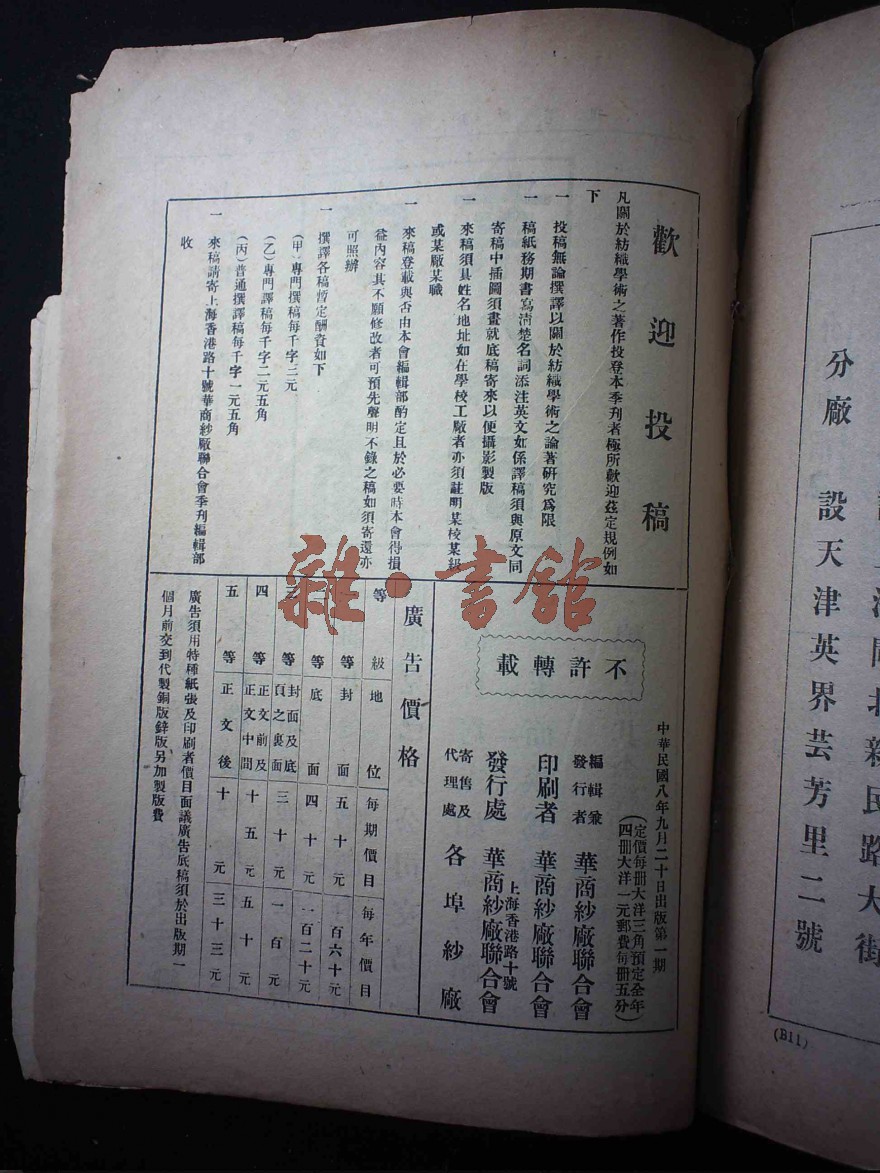 歡迎投稿
凡關於紡織學術之著作投登本季刊者極所歡迎茲定規例如
下
一 投稿無論撰譯以關於紡織學術之論著研究爲限
一 稿紙務期書寫淸楚名詞添注英文如係譯稿須與原文同
寄稿中插圖須畫就底稿寄來以便攝影製版
一 來稿須具姓名地址如在學校工廠者亦須註明某校某級
或某廠某職
一 來稿登載與否由本會編輯部酌定且於必要時本會得損
益內容其不願修改者可預先聲明不錄之稿如須寄還亦
可照辦
一 撰譯各稿暫定酬資如下
(甲)專門撰稿每千字三元
(乙)專門譯稿每千字二元五角
(丙)普通撰譯稿每千字一元五角
一 來稿請寄上海香港路十號華商紗廠聯合會季刊編輯部
收
中華民國八年九月二十日出版第一期
(定價每册大洋三角預定全年
四册大洋一元郵費每册五分)
不許轉載
編輯兼
發行者 華商紗廠聯合會
印刷者 華商紗廠聯合會
上海香港路十號
發行處 華商紗廠聯合會
寄售及
代理處 各埠紗廠
廣告價格
等級 地位 每期價目 每年價目
等 封面 五十元 百六十元
等 底面 四十元 一百二十元
等 封面及底頁之裏面 三十元 一百元
四等 正文前及正文中間 十五元 五十元
五等 正文後 十元 三十三元
廣告須用特種紙張及印刷者價目面議廣告底稿須於出版期一
個月前交到代製銅版鋅版另加製版費
雜·書館
新民路大街
分廠 設天津英界芸芳里二號
(B11)